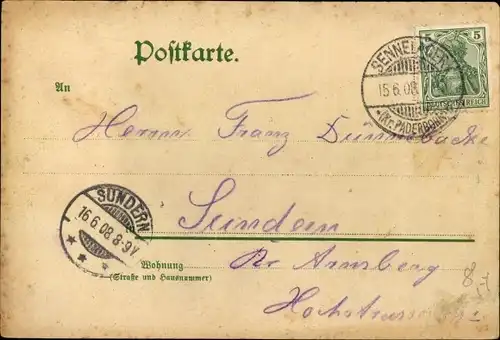 Postkarte.
SENNELAGER
15.6.08.
*(Kr. PADERBORN)
5
DEUTSCHES REICH
An
Herrn Franz
SUNDERN
16.6.08.8-9V.
* * *
Sundern
Wohnung
(Straße und Hausnummer)
Kr Arnsberg
Hochstrasse
8